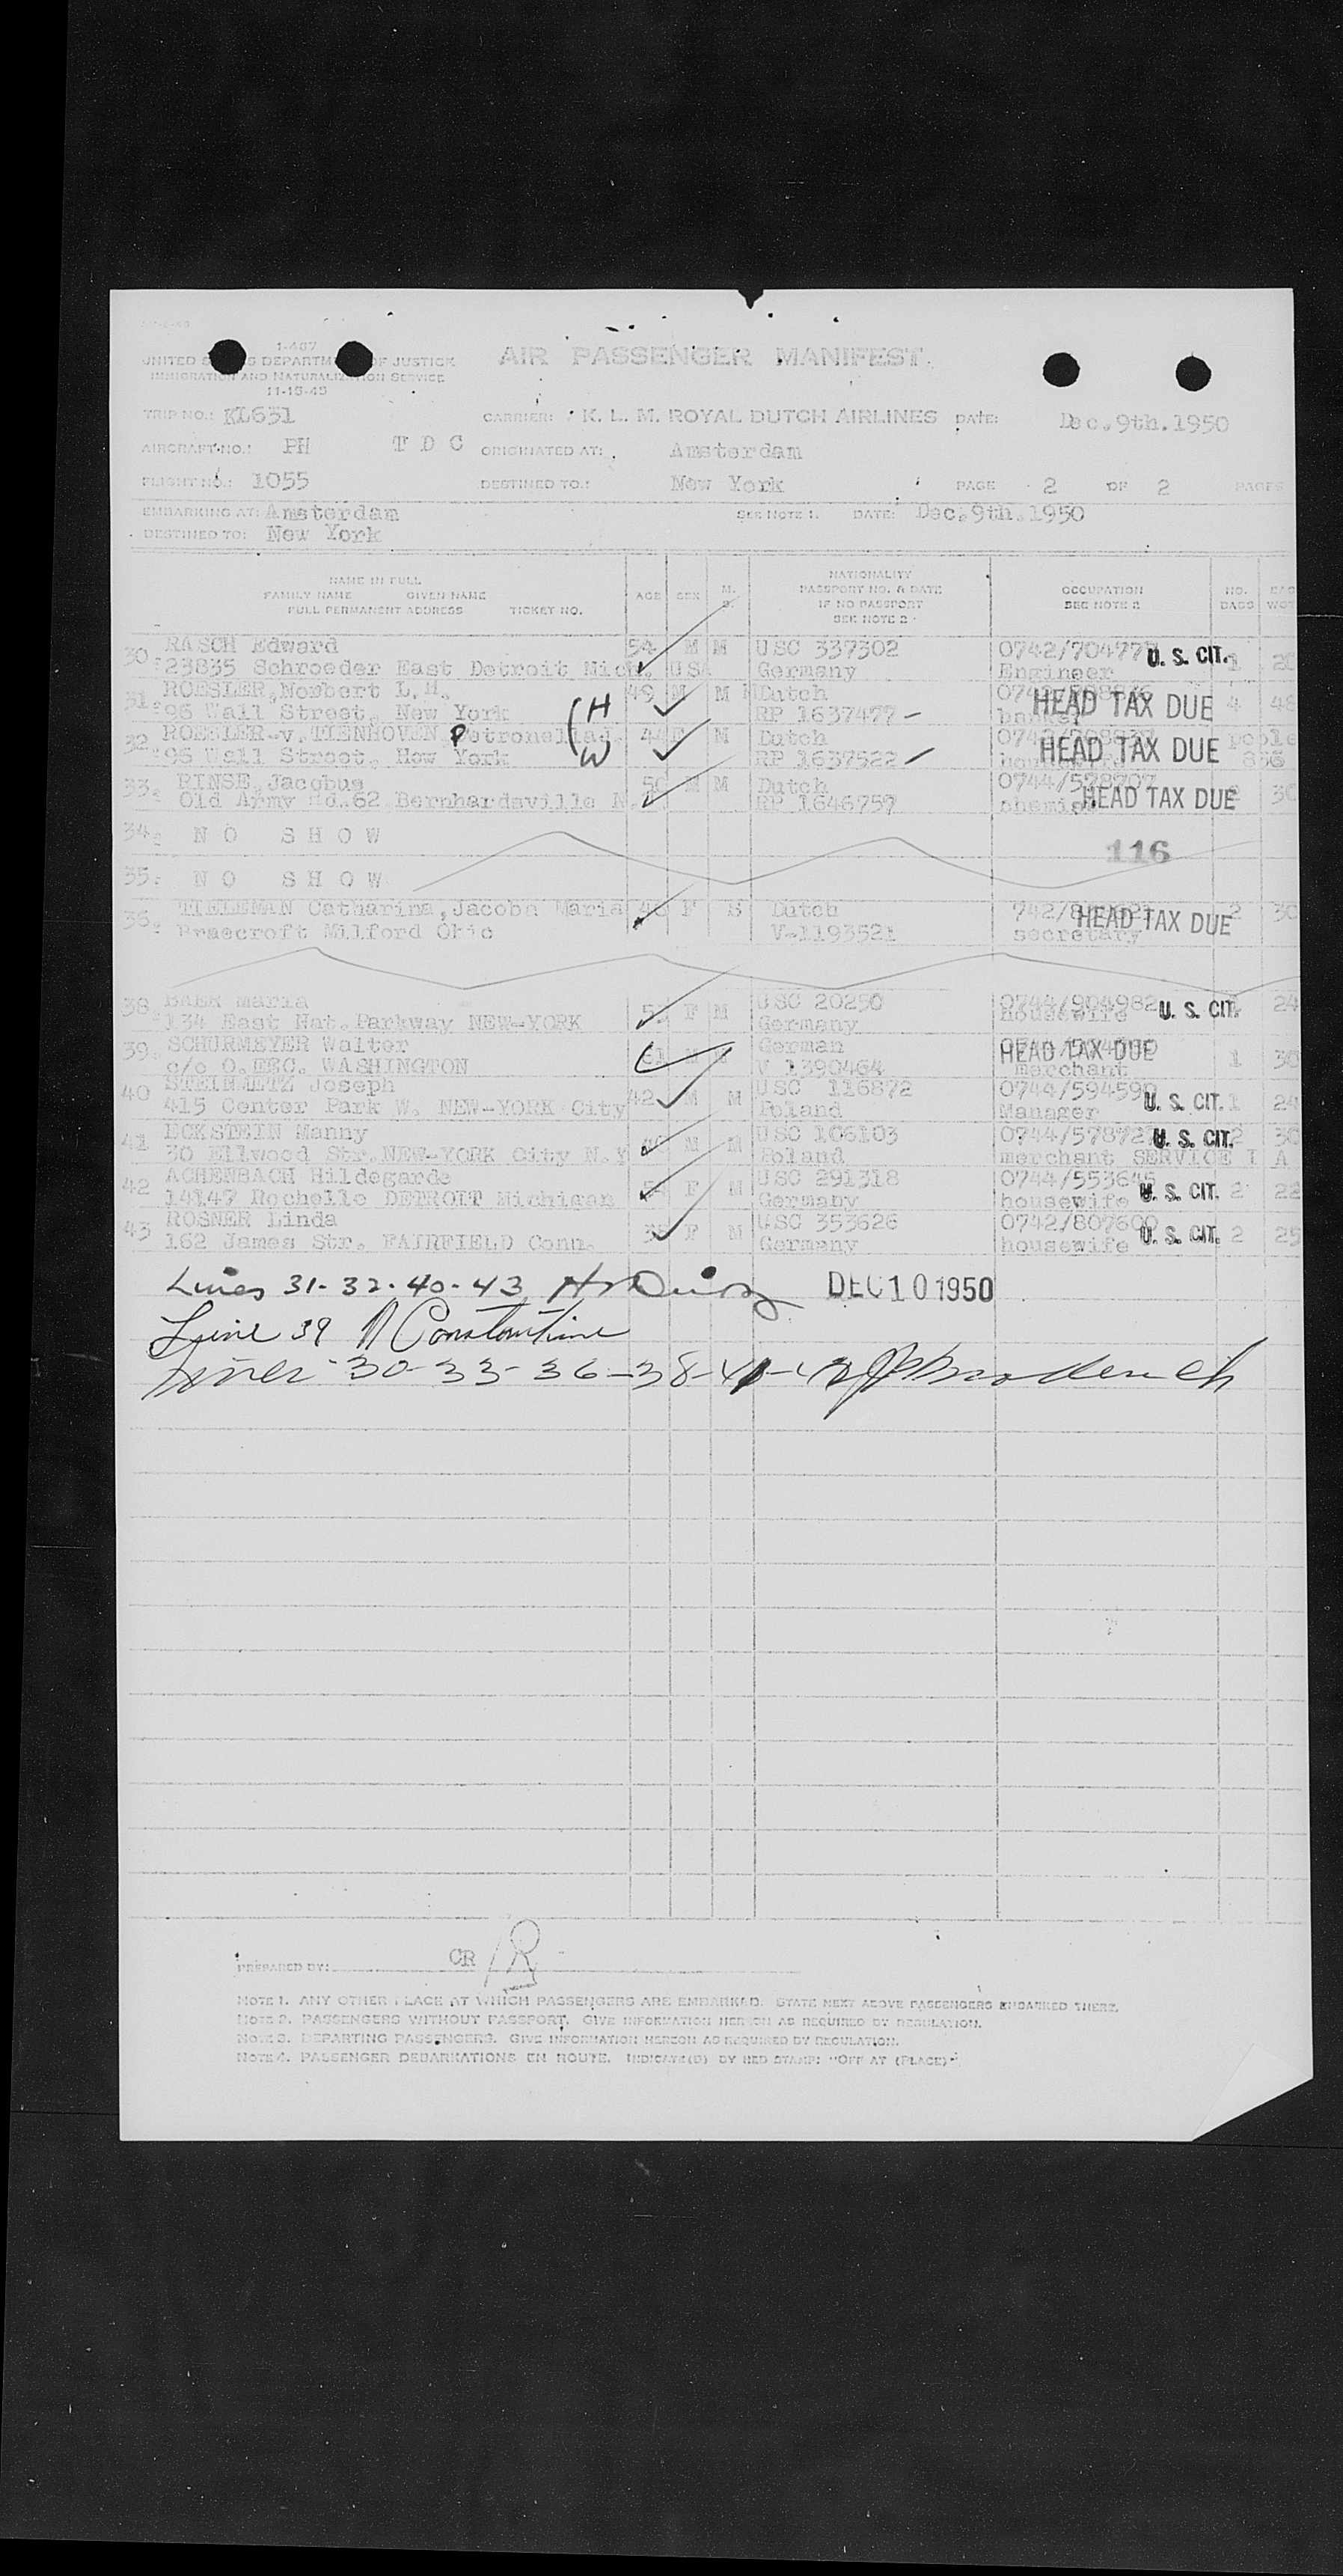 I-407
UNITED STATES DEPARTMENT OF JUSTICE
IMMIGRATION AND NATURALIZATION SERVICE
11-15-45
AIR PASSENGER MANIFEST
TRIP NO.: KL631 CARRIER: K. L. M. ROYAL DUTCH AIRLINES DATE: Dec.9th.1950
AIRCRAFT NO.: PH T D C ORIGINATED AT: Amsterdam
FLIGHT NO.: 1055 DESTINED TO.: New York PAGE 2 OF 2 PAGES
EMBARKING AT: Amsterdam SEE NOTE 1. DATE: Dec.9th.1950
DESTINED TO: New York
NAME IN FULL
FAMILY NAME GIVEN NAME
FULL PERMANENT ADDRESS TICKET NO.
AGE SEX M. S.
NATIONALITY
PASSPORT NO. & DATE
IF NO PASSPORT
SEE NOTE 2
OCCUPATION
SEE NOTE 2
NO. BAGS
30: RASCH Edward 54 M M USC 337302 U. S. CIT. 1
23835 Schroeder East Detroit Mich. USA Germany Engineer
31: ROESLER, Norbert L.H. (H 49 M M Dutch HEAD TAX DUE 4 48
96 Wall Street, New York RP 1637477 - banker
32: ROESLER-v. TIENHOVEN Petronella W 44 F M Dutch HEAD TAX DUE
96 Wall Street, New York RP 1637522 856
33: RINSE, Jacobus 50 M M Dutch 0744/578707 HEAD TAX DUE 30
Old Army Rd.62 Bernhardsville N RP 1646757 chemist
34: N O S H O W 116
35: N O S H O W
36: TIELEMAN Catharina, Jacoba Maria F S Dutch HEAD TAX DUE 2 30
Braecroft Milford Ohio V-1193521 secretary
38: BAER Maria F M USC 20250 0744/904982 U. S. CIT. 24
134 East Hat. Parkway NEW-YORK Germany housewife
39: SCHURMEYER Walter 61 M German HEAD TAX DUE 1 30
c/o O.EEC. WASHINGTON V 1390464 merchant
40 STEINMETZ Joseph 42 M M USC 116872 0744/594590 U. S. CIT. 1 24
415 Center Park W. NEW-YORK City Poland Manager
41 ECKSTEIN Manny M M USC 106103 U. S. CIT. 2 30
30 Ellwood Str. NEW-YORK City N.Y Poland merchant SERVICE I A
42 ACHENBACH Hildegarde F M USC 291318 U. S. CIT. 2 22
14147 Rochelle DETROIT Michigan Germany housewife
43 ROSNER Linda F M USC 353626 0742/807600 U. S. CIT. 2 25
162 James Str. FAIRFIELD Conn. Germany housewife
Lines 31-32-40-43 DEC 10 1950
Line 39 Constantine
Lines 30-33-36-38-41-42
PREPARED BY: CR
NOTE 1. ANY OTHER PLACE AT WHICH PASSENGERS ARE EMBARKED. STATE NEXT ABOVE PASSENGERS EMBARKED THERE.
NOTE 2. PASSENGERS WITHOUT PASSPORT. GIVE INFORMATION HEREON AS REQUIRED BY REGULATION.
NOTE 3. DEPARTING PASSENGERS. GIVE INFORMATION HEREON AS REQUIRED BY REGULATION.
NOTE 4. PASSENGER DEBARKATIONS EN ROUTE. INDICATE(D) BY RED STAMP: "OFF AT (PLACE)"